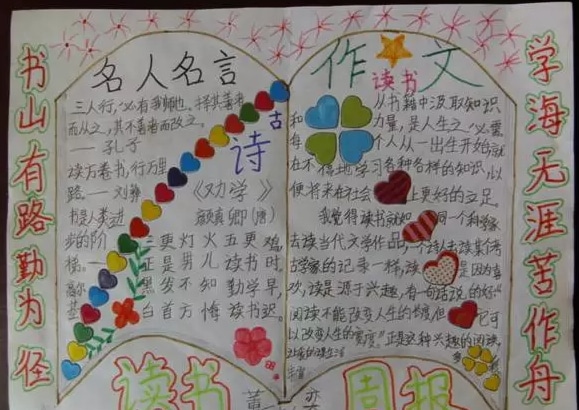 书山有路勤为径
名人名言
三人行,必有我师也。择其善者
而从之,其不善者而改之。
——孔子
读万卷书,行万里
路。——刘彝
书是人类进
步的阶
梯。——
高尔
基
古
诗
《劝学》
颜真卿(唐)
三更灯火五更鸡,
正是男儿读书时,
黑发不知勤学早,
白首方悔读书迟。
作文
读书
从书籍中汲取知识
和力量,是人生之必需
每个人从一出生开始就
在不停地学习各种各样的知识,以
便将来在社会上更好的立足。
我觉得读书就如同一个科学家
去读当代文学作品,一个诗人去读
古学家的记录一样,读是因为喜
欢,读是源于兴趣,有一句话说的好:“
阅读不能改变人生的长度,但它可
以改变人生的宽度。”正是这种兴趣的阅读,
学海无涯苦作舟
读书
周报